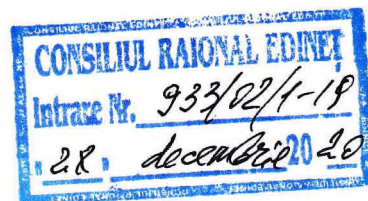 CONSILIUL RAIONAL EDINEȚ
Intrare Nr. 933/02/1-19
"28" decembrie 2020